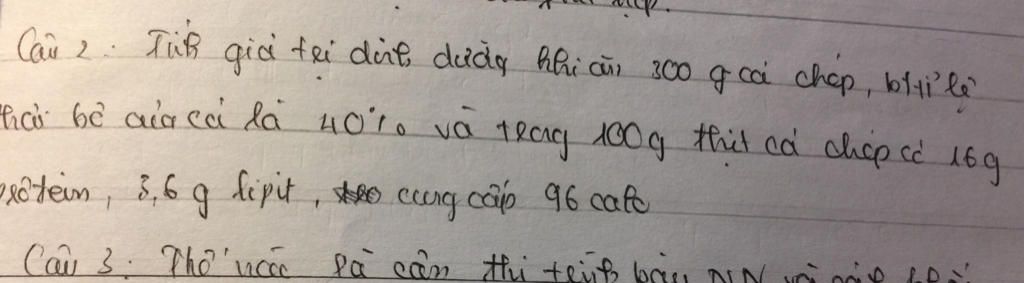 Câu 2: Tính giá trị dinh dưỡng khi ăn 300 g cá chép, biết tỉ lệ
thải bỏ của cá là 40% và trong 100g thịt cá chép có 16g
protein, 3,6 g lipit, cung cấp 96 calo
Câu 3: Thế nào là cân